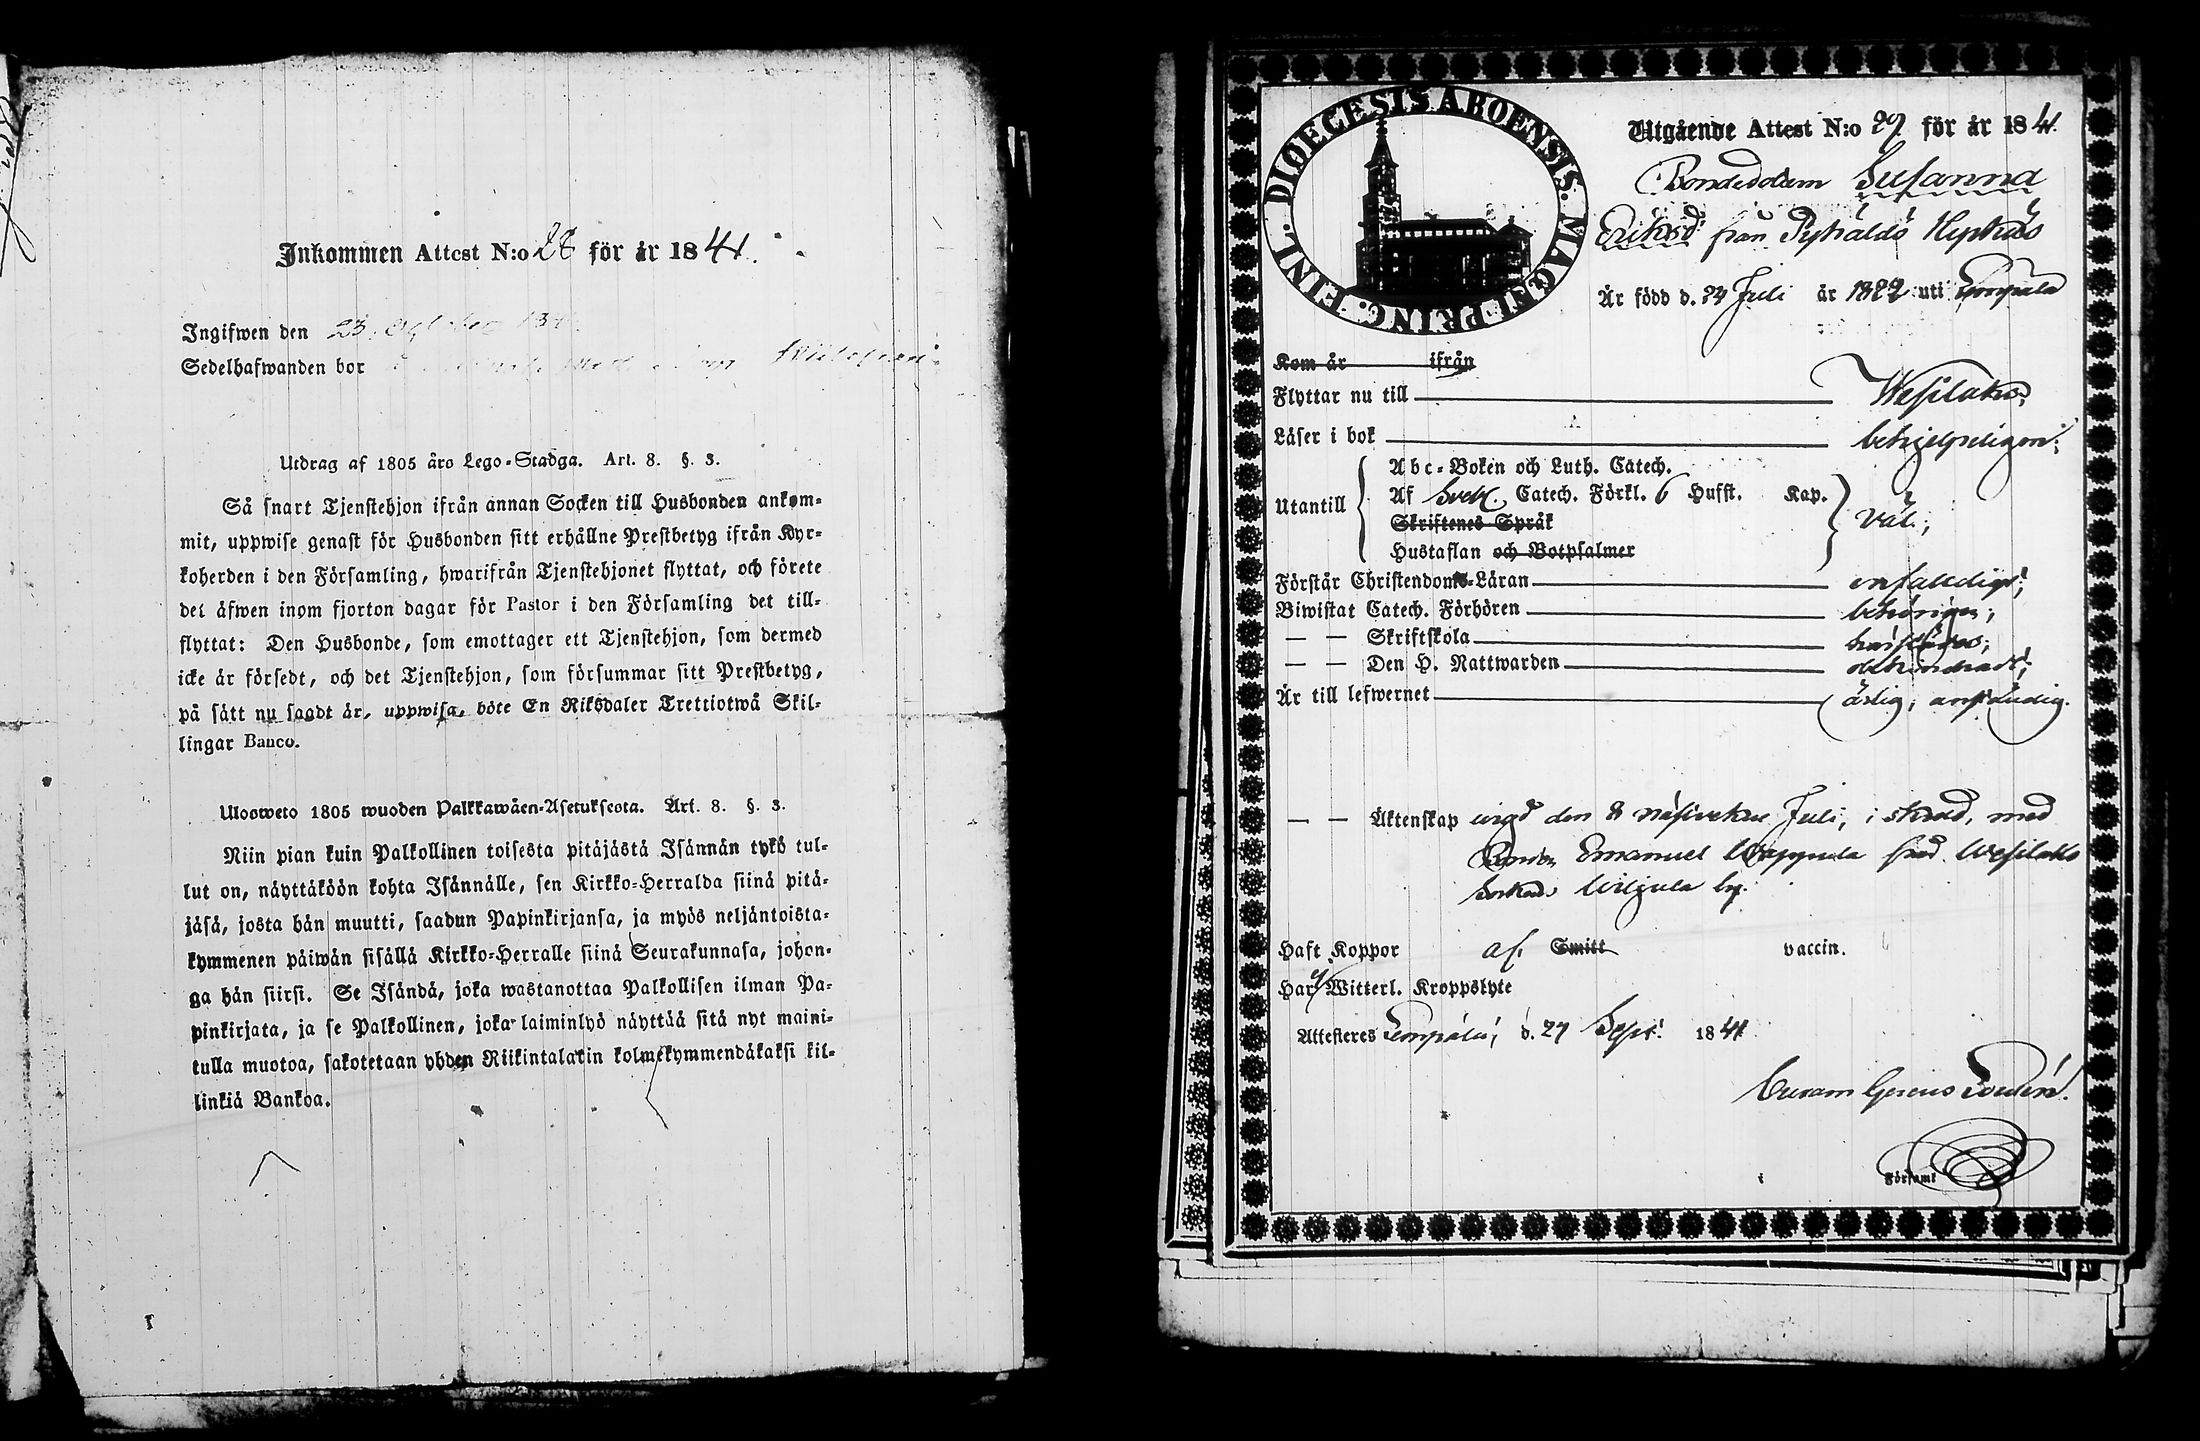 Inkommen Attest N:o 28 för år 1841.
Ingifwen den 23
Sedelhafwanden bor
Utdrag af 1805 års Lego-Stadga. Art. 8. §. 3.
Så snart Tjenstehjon ifrån annan Socken till Husbonden ankom-
mit, uppwise genast för Husbonden sitt erhållne Prestbetyg ifrån Kyr-
koherden i den Församling, hwarifrån Tjenstehjonet flyttat, och förete
det äfwen inom fjorton dagar för Pastor i den Församling det till-
flyttat: Den Husbonde, som emottager ett Tjenstehjon, som dermed
icke är försedt, och det Tjenstehjon, som försummar sitt Prestbetyg,
på sätt nu sagdt är, uppwisa, böte En Riksdaler Trettiotwå Skil-
lingar Banco.
Ulosweto 1805 wuoden Palkkawäen-Asetuksesta. Art. 8. §. 3.
Niin pian kuin Palkollinen toisesta pitäjästä Isännän tykö tul-
lut on, näyttäköön kohta Isännälle, sen Kirkko-Herralda siinä pitä-
jäsä, josta hän muutti, saadun Papinkirjansa, ja myös neljäntoista-
kymmenen päiwän sisällä Kirkko-Herralle siinä Seurakunnasa, johon-
ga hän siirsi. Se Isändä, joka wastanottaa Palkollisen ilman Pa-
pinkirjata, ja se Palkollinen, joka laiminlyö näyttää sitä nyt maini-
tulla muotoa, sakotetaan yhden Riikintalarin kolmekymmendäkaksi kil-
linkiä Bankoa.
DIOECESIS ABOENSIS. MAGNI PRINC. FINL.
Utgående Attest N:o 29 för år 1841.
Bondedottern Susanna
Eriksdr från Pyhäldö
Är född d. 24 Juli år 1822 uti Lempälä
Kom år ifrån
Flyttar nu till Wesilaks;
Läser i bok behjelpeligen;
Abc-Boken och Luth. Catech.
Utantill Af Svebel. Catech. Förkl. 6 Hufst. Kap. väl;
Skriftenes Språk
Hustaflan och Botpsalmer
Förstår Christendoms-Läran enfaldigt;
Biwistat Catech. Förhören behörigen;
— — Skriftskola
— — Den H. Nattwarden obehindrad;
Är till lefwernet ärlig, anständig.
— — Äktenskap den 8 Juli, med
Emanuel från Wesilaks
Socken by.
Haft Koppor af Smitt vaccin.
Har ej Witterl. Kroppslyte
Attesteres Lempälä, d. 27 Sept. 1841
Curam Gerens
i Församl